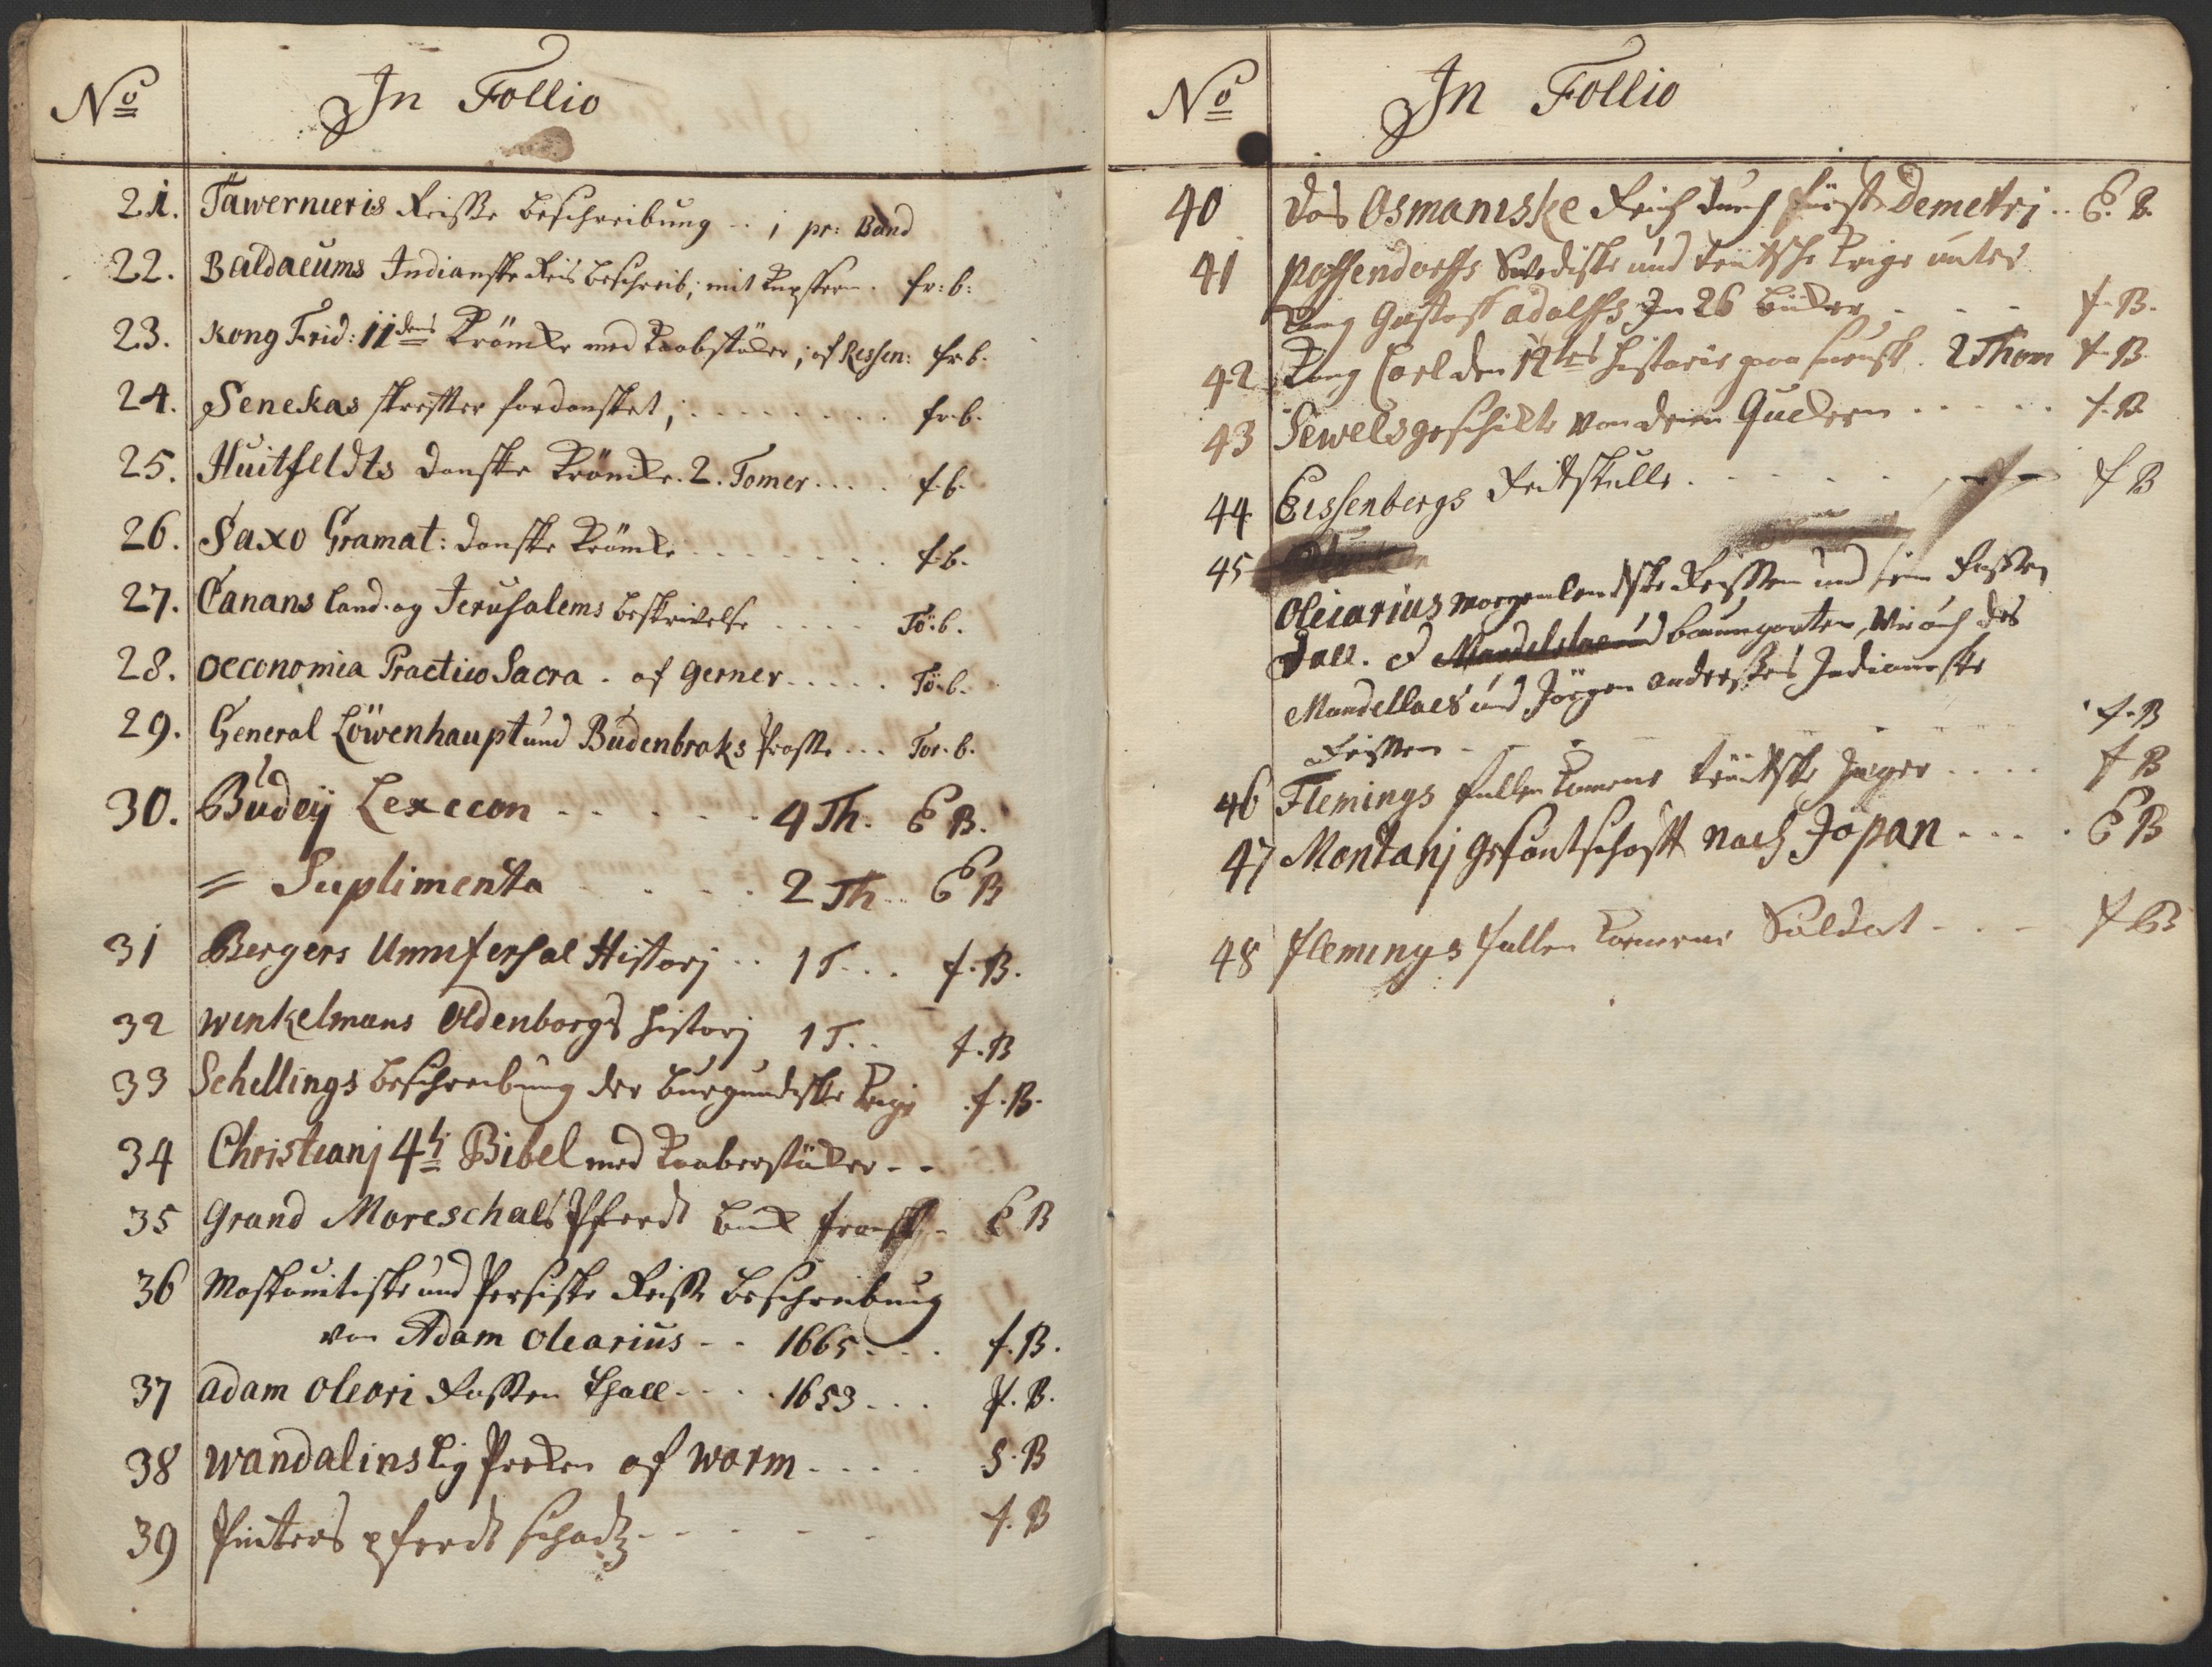 No In Follio
21. Tawernieris Reisse beschreibung .. i pr: Band
22. Baldaeums Indianske Reis beschreib; mit Kupffern. fr: b:
23. Kong Frid: IIdens Krönicke med Kaabstöcker; af Ressen: fr. b.
24. Senekas skreffter fordansket; . . . . . . . . fr. b.
25. Huitfeldts danske Krönicke. 2. Tomer . . . . f. b.
26. Saxo Gramat: danske Krönicke . . . . . . . f. b.
27. Canans Land. og Jerusalems beskrivelse . . . . Tö: b.
28. Oeconomia Practico Sacra . af Gerner . . . . . Tö. b.
29. General Löwenhaupt und Budenbroks Prosse . . . Tor. b.
30. Budeÿ Lexecon . . . . . 4 Th. E B.
= Suplimenta . . . . 2 Th. . E B
31 Bergers Unniferhal Historj . . 1 T. . . f. B.
32 Winkelmans Oldenborgs Historj 1 T. . f. B
33 Schellings beschreibung der burgundiske Krige f. B.
34 Christianj 4ti Bibel med Kaaberstücker - -
35 Grand Mareschals Pferdt buck fransk - E B
36 Moskouitiske und Persiske Reisse beschreibung
von Adam Olearius - - 1665 . . . f. B.
37 Adam Oleari Rossen Thall - - . . 1653 . . . P. B.
38 Wandalins Lig Precken af Worm . . . . . S. B
39 Pinters Pferdt schadtz - - - - - f. B
No In Follio
40 Das Osmaniske Reich durch Fürst Demetrj . . E. B.
41 Poffendorffs Swediske und teutsche Krige unter
Kong Gustaff Adolffs In 26 bücker . - - f. B.
42 Kong Carl den 12tes Historie paa svensk . 2 Thom f. B.
43 Sewels geschickte von denen Quckern . . . . . f. B
44 Eissenbergs . . . . . - - f B
45
Oleiarius Morgenlendiske Reissen und sein Rossen
Dall. Mandelslac und Baumgarten, Wie auch des
Mandellaes und Jörgen Anderssens Indianeske
Reissen - - - - - - - f. B
46 Flemings fullen komene teudtske Jæger . . . . f B
47 Montanj gesantschafft nach Japan . . . . . E B
48 Flemings fullen komene Soldat - . - f B